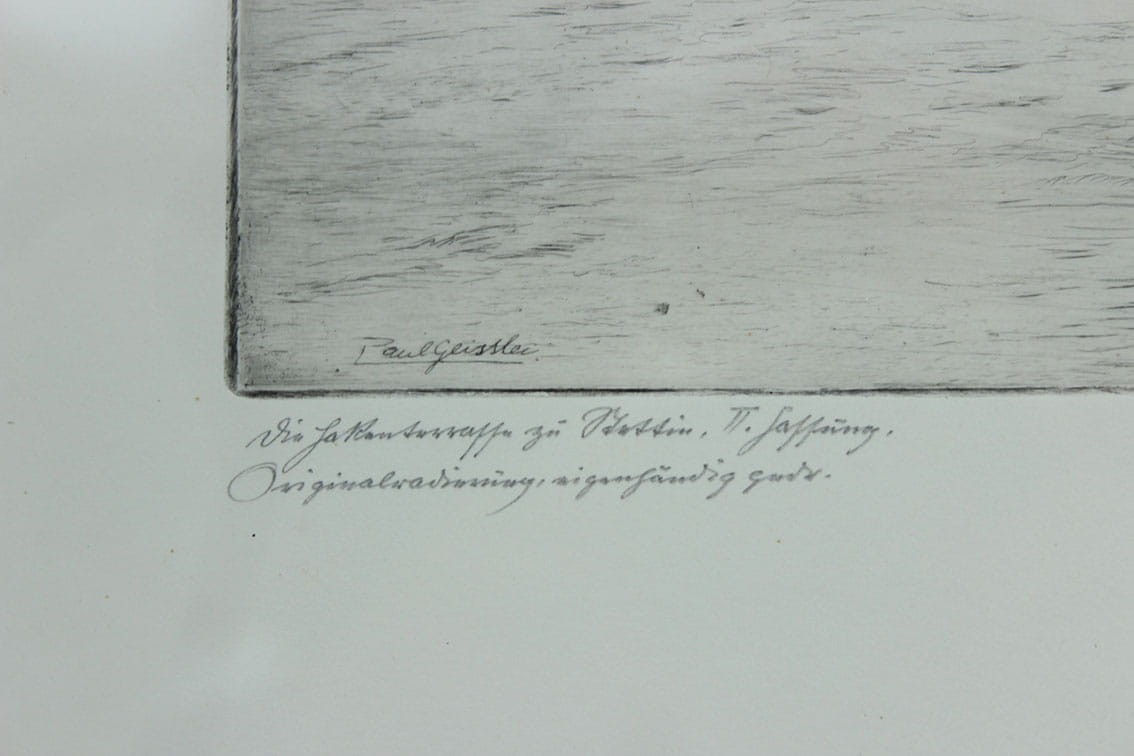 Paul Geissler
Die Hakenterrasse zu Stettin. II. Fassung.
Originalradierung, eigenhändig gedr.